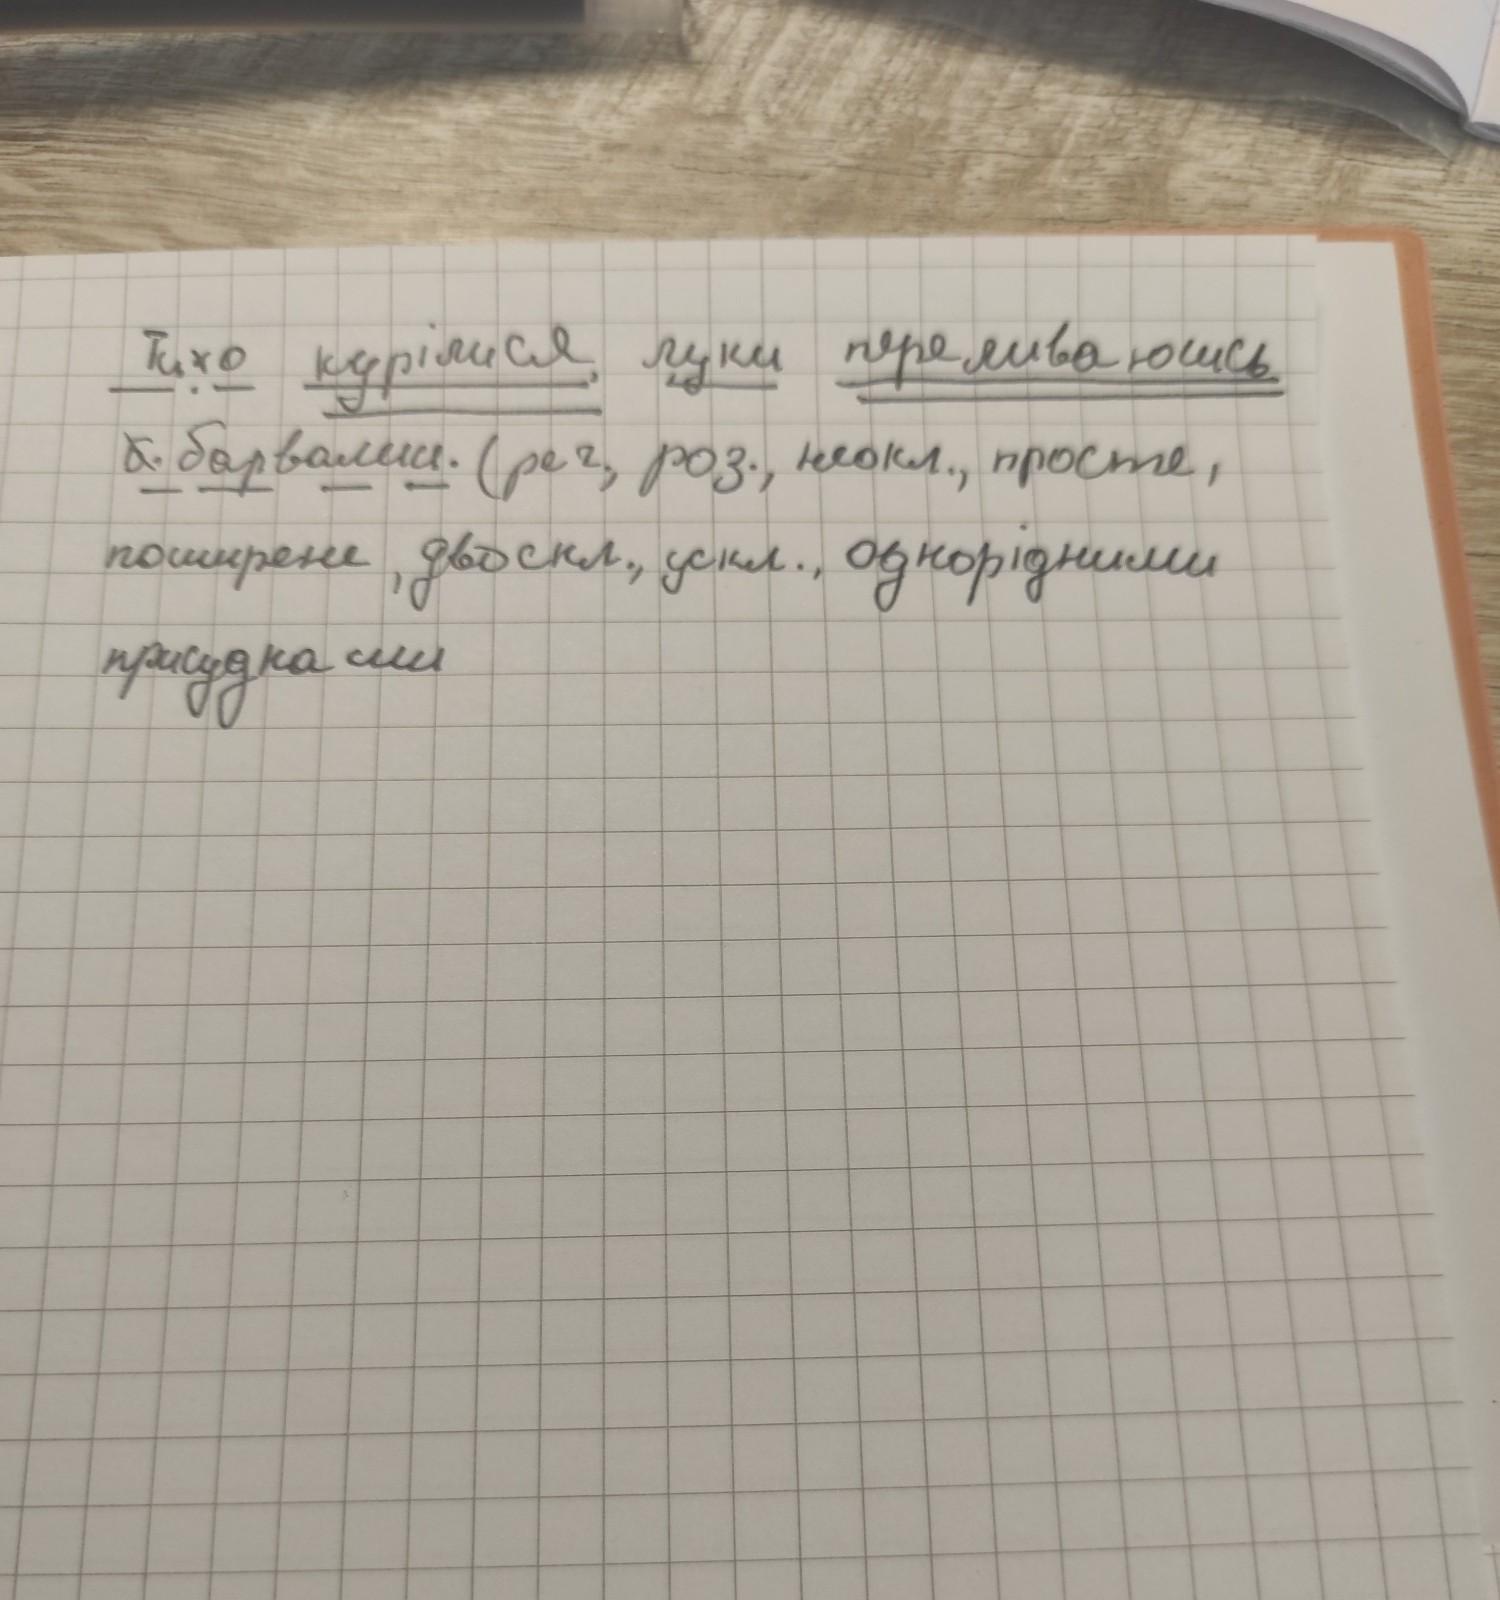 Тихо курілися, луки переливаючись
барвами. (реч., роз., неокл., просте,
поширене, двоскл., ускл., однорідними
присудками